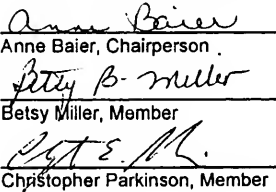 Anne Baier
Anne Baier, Chairperson
Betsy B. Miller
Betsy Miller, Member
Christopher Parkinson, Member